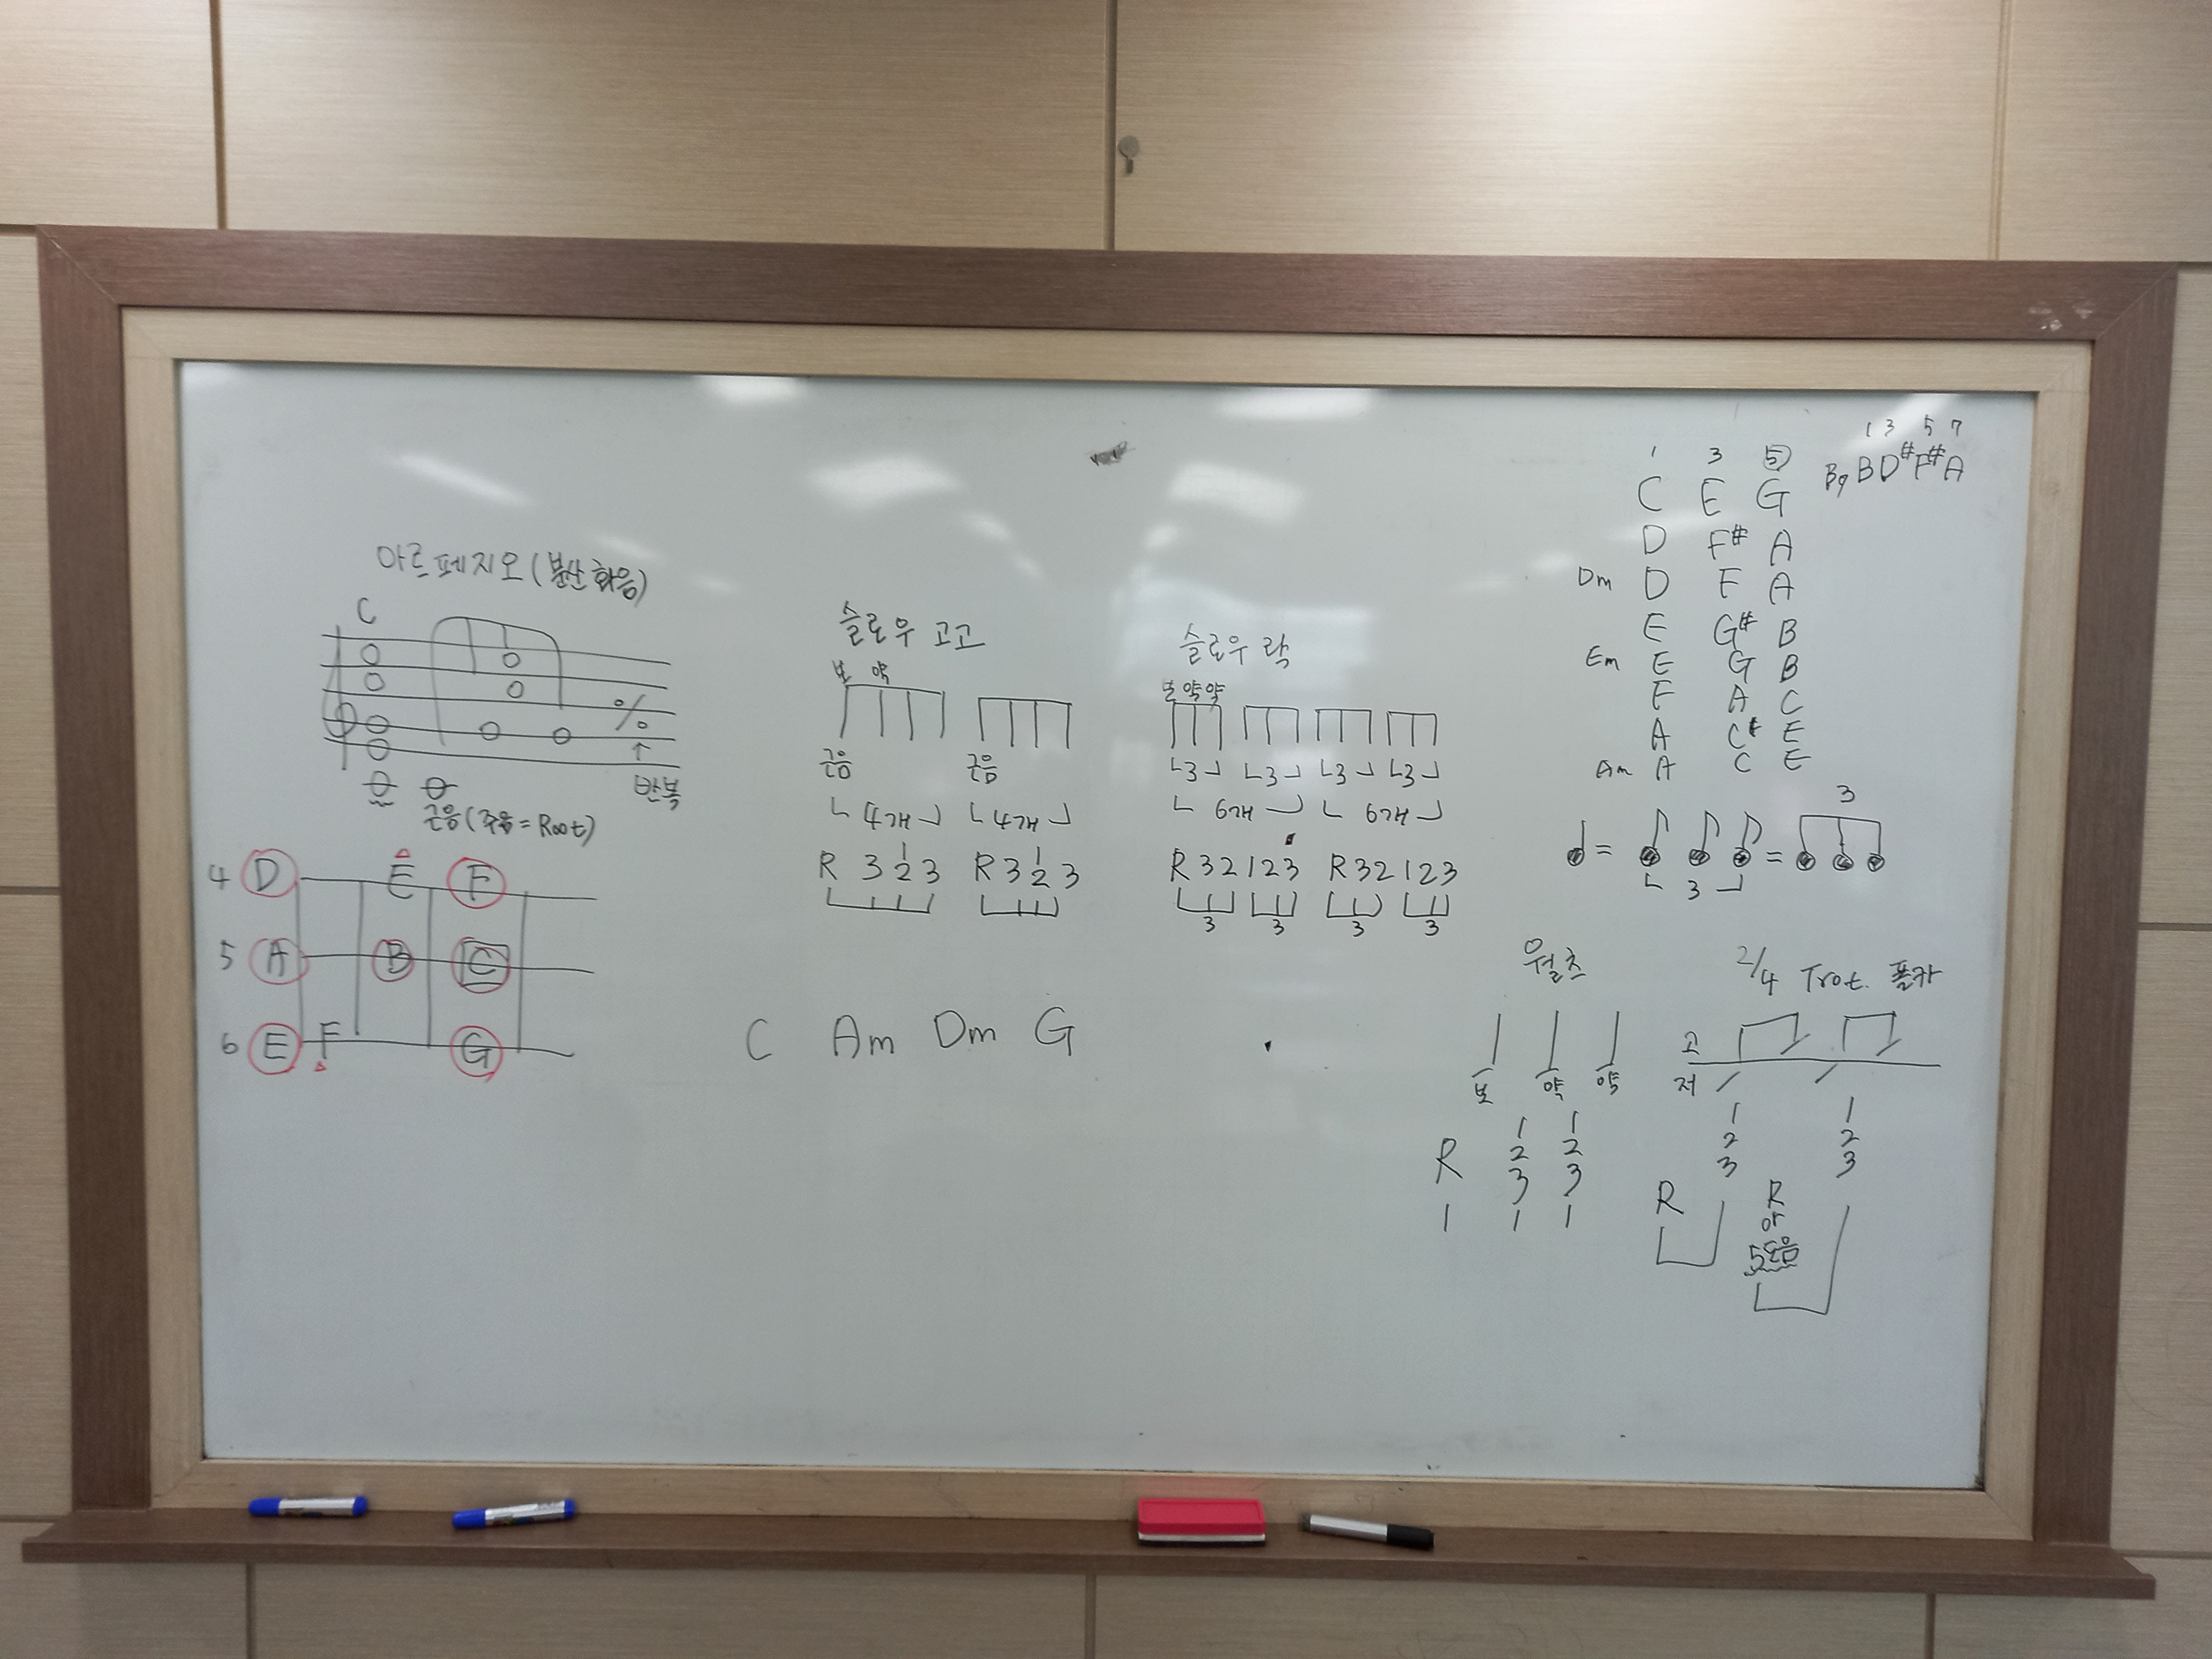 아르페지오(분산화음)
C
%
↑
반복
근음(주음=Root)
4 D E F
5 A B C
6 E F G
슬로우 고고
보 약
근음 근음
4개 4개
1 1
R 3 2 3 R 3 2 3
C Am Dm G
슬로우 락
보약약
3 3 3 3
6개 6개
R 3 2 1 2 3 R 3 2 1 2 3
3 3 3 3
1 3 5
C E G
D F# A
Dm D F A
E G# B
Em E G B
F A C
A C# E
Am A C E
1 3 5 7
B7 B D# F# A
3
= =
3
왈츠
보 약 약
1 1
2 2
R 3 3
1 1 1
2/4 Trot. 폴카
고
저
1 1
2 2
3 3
R R
or
5도음